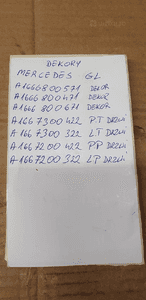 DEKORY
MERCEDES GL
A1666800571 DEKOR
A1666800471 DEKOR
A1666800671 DEKOR
A1667300422 PT DRZWI
A1667300322 LT DRZWI
A1667200422 PP DRZWI
A1667200322 LP DRZWI